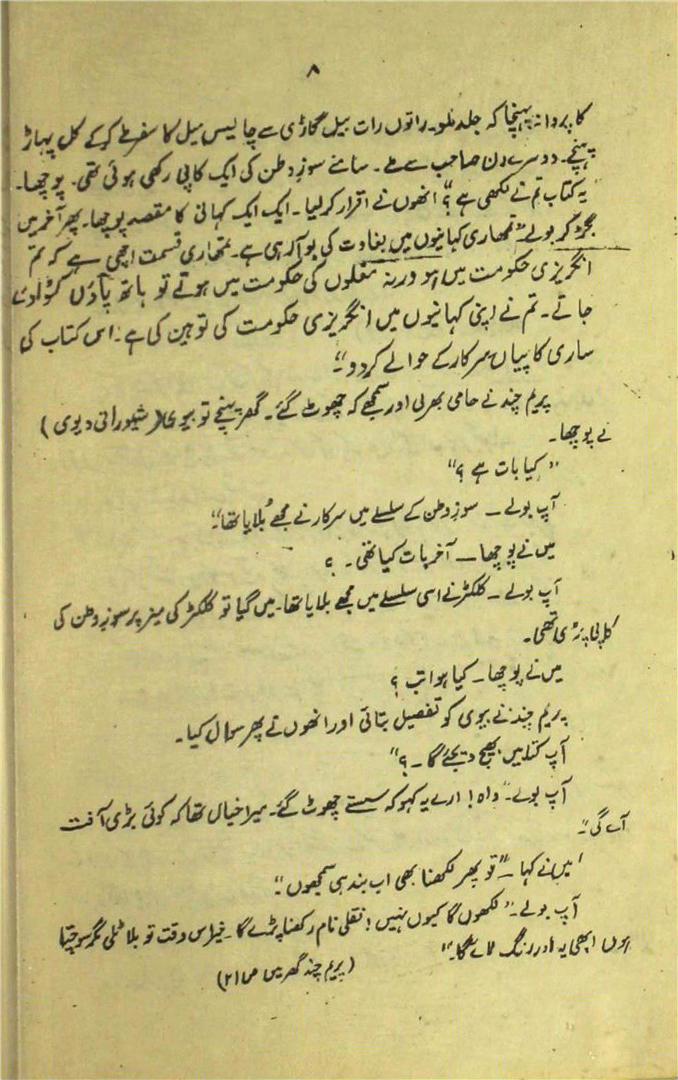 ۸
کا پروانہ پہنچا کہ جلد ملو۔ راتوں رات بیل گاڑی سے چالیس میل کا سفر طے کر کے کل پہاڑ
پہنچے۔ دوسرے دن صاحب سے ملے۔ سامنے سوزِ وطن کی ایک کاپی رکھی ہوئی تھی۔ پوچھا۔
یہ کتاب تم نے لکھی ہے؟" انھوں نے اقرار کر لیا۔ ایک ایک کہانی کا مقصد پوچھا۔ پھر آخر میں
بگڑ کر بولے "تمھاری کہانیوں میں بغاوت کی بو آ رہی ہے۔ تمھاری قسمت اچھی ہے کہ تم
انگریزی حکومت میں ہو ورنہ مغلوں کی حکومت میں ہوتے تو ہاتھ پاؤں کٹوا دئے
جاتے۔ تم نے اپنی کہانیوں میں انگریزی حکومت کی توہین کی ہے۔ اس کتاب کی
ساری کاپیاں سرکار کے حوالے کر دو"۔
پریم چند نے حامی بھر لی اور سمجھے کہ چھوٹ گئے۔ گھر پہنچے تو بیوی (شیورانی دیوی)
نے پوچھا۔
"کیا بات ہے؟"
آپ بولے۔ سوزِ وطن کے سلسلے میں سرکار نے مجھے بُلایا تھا"۔
میں نے پوچھا۔ آخر بات کیا تھی۔ ؟
آپ بولے۔ کلکٹر نے اسی سلسلے میں مجھے بلایا تھا۔ میں گیا تو کلکٹر کی میز پر سوزِ وطن کی
کاپی پڑی تھی۔
میں نے پوچھا۔ کیا ہوا تب؟
پریم چند نے بیوی کو تفصیل بتائی اور انھوں نے پھر سوال کیا۔
آپ کتابیں بھیج دیجئے گا۔؟"
آپ بولے۔ "واہ! ارے یہ کہو کہ سستے چھوٹ گئے۔ میرا خیال تھا کہ کوئی بڑی آفت
آئے گی"۔
میں نے کہا۔ "تو پھر لکھنا بھی اب بند ہی سمجھوں"۔
آپ بولے۔ "لکھوں گا کیوں نہیں! نقلی نام رکھنا پڑے گا۔ خیر اس وقت تو بلا ٹلی مگر سوچتا
ہوں ابھی یہ اور رنگ لائے گا۔"
(پریم چند گھر میں ص ۲۱)